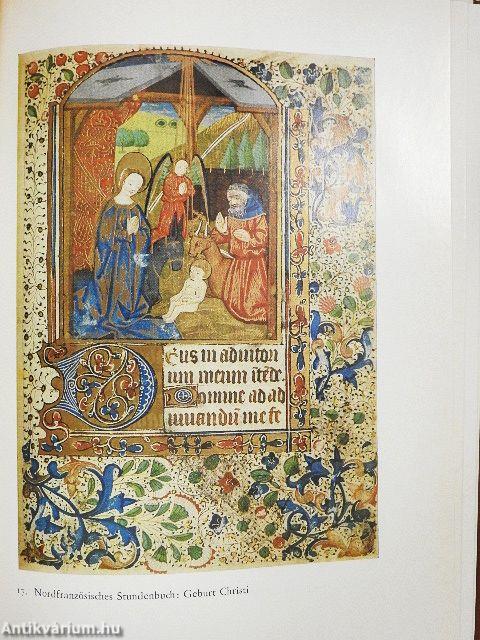 Deus in adiutori
um meum intēde
Domine ad ad
iuuandū me fe
17. Nordfranzösisches Stundenbuch: Geburt Christi
Antikvárium.hu